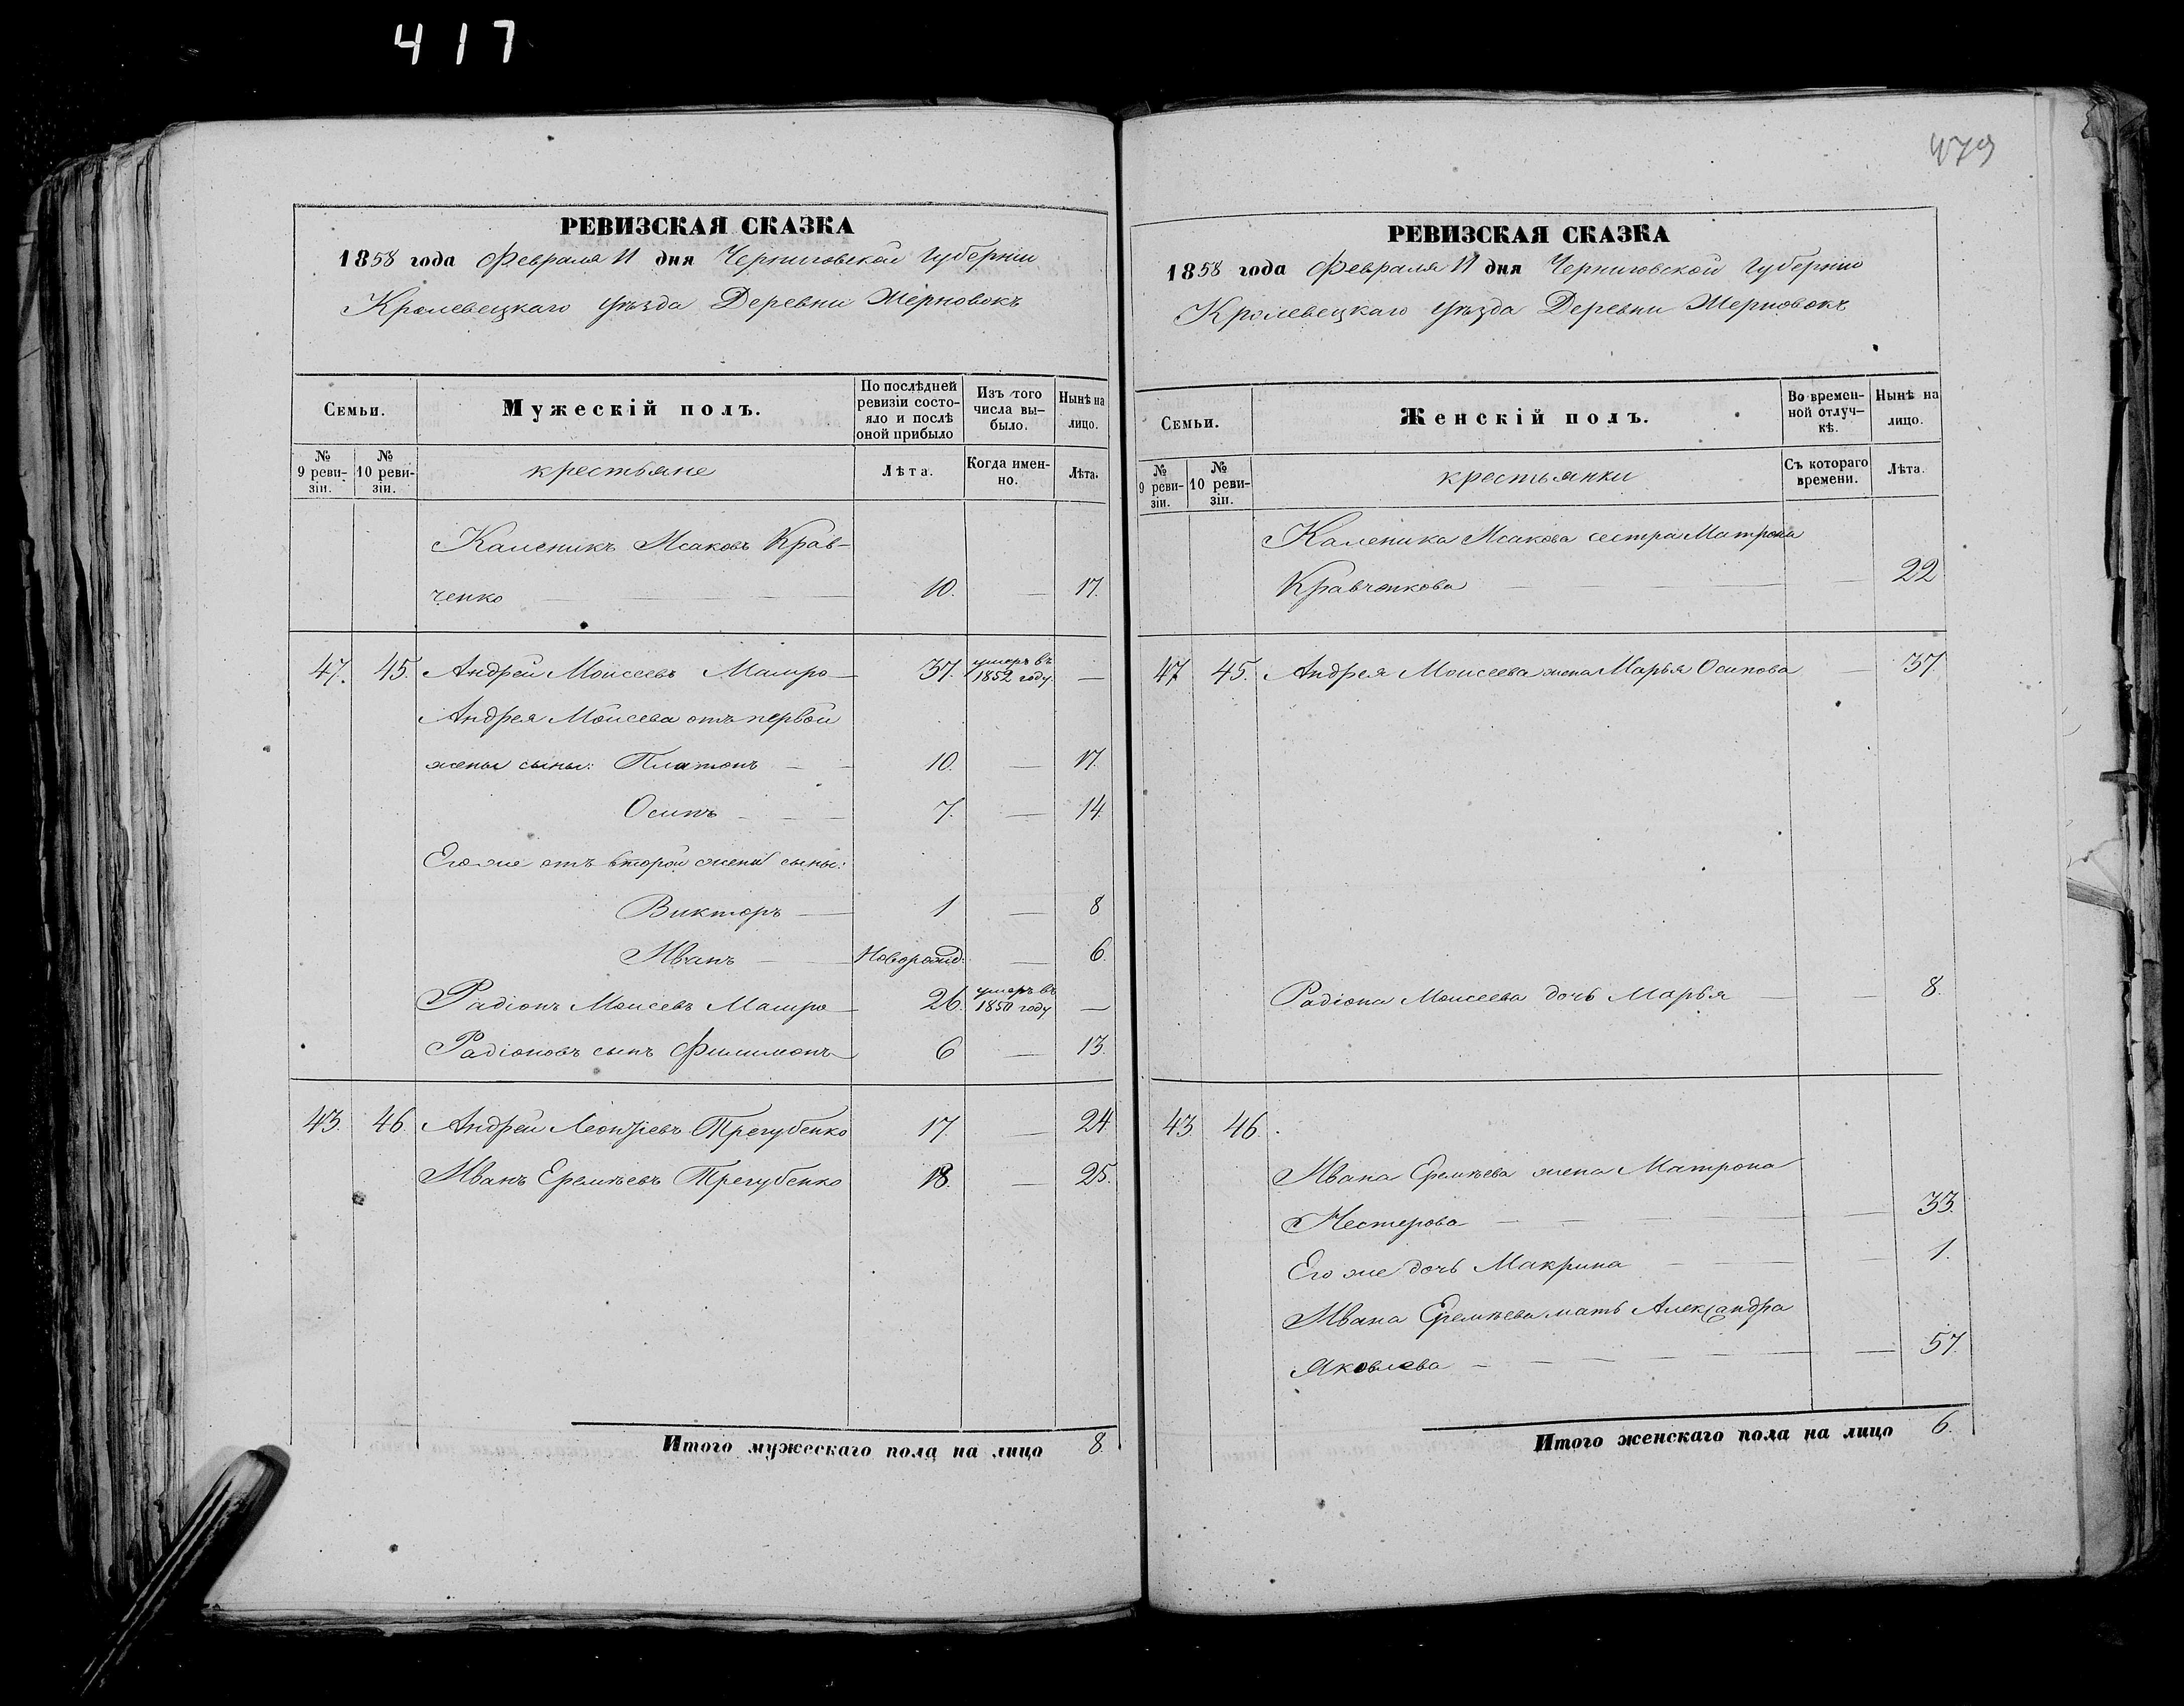 417
479
РЕВИЗСКАЯ СКАЗКА
1858 года Февраля 11 дня Черниговской Губерніи
Кролевецкаго Уѣзда Деревни Жерновокъ
Семьи.
Мужескій полъ.
По послѣдней ревизіи состо-
яло и послѣ оной прибыло
Изъ того числа вы-
было.
Нынѣ на лицо.
№ 9 реви-
зіи.
№ 10 реви-
зіи.
крестьяне
Лѣта.
Когда имен-
но.
Лѣта.
Каленикъ Исаковъ Крав-
ченко — 10. — 17.
47. 45. Андрей Моисеевъ Машро — 37. умеръ въ 1852 году —
Андрея Моисева отъ первой
жены сыны: Платонъ — 10. — 17.
Осипъ — 7. — 14.
Его же отъ второй жены сыны:
Викторъ — 1 — 8
Иванъ — Новорожд: — 6.
Радіонъ Моисевъ Машро — 26. умеръ въ 1850 году —
Радіоновъ сынъ Филимонъ — 6 — 13.
43. 46. Андрей Леонтіевъ Трегубенко 17. — 24
Иванъ Еремѣевъ Трегубенко 18. — 25.
Итого мужескаго пола на лицо 8.
РЕВИЗСКАЯ СКАЗКА
1858 года Февраля 11 дня Черниговской Губерніи
Кролевецкаго Уѣзда Деревни Жерновокъ
Семьи.
Женскій полъ.
Во времен-
ной отлуч-
кѣ.
Нынѣ на лицо.
№ 9 реви-
зіи.
№ 10 реви-
зіи.
крестьянки
Съ котораго времени.
Лѣта.
Каленика Исакова сестра Матрона
Кравченкова — — 22
47 45. Андрея Моисеева жена Марья Осипова — 37
Радіона Моисеева дочь Марья — — 8.
43. 46.
Ивана Еремѣева жена Матрона
Нестерова — — 33.
Его же дочь Макрина — — 1.
Ивана Еремѣева мать Александра
Яковлева — — 57.
Итого женскаго пола на лицо 6.